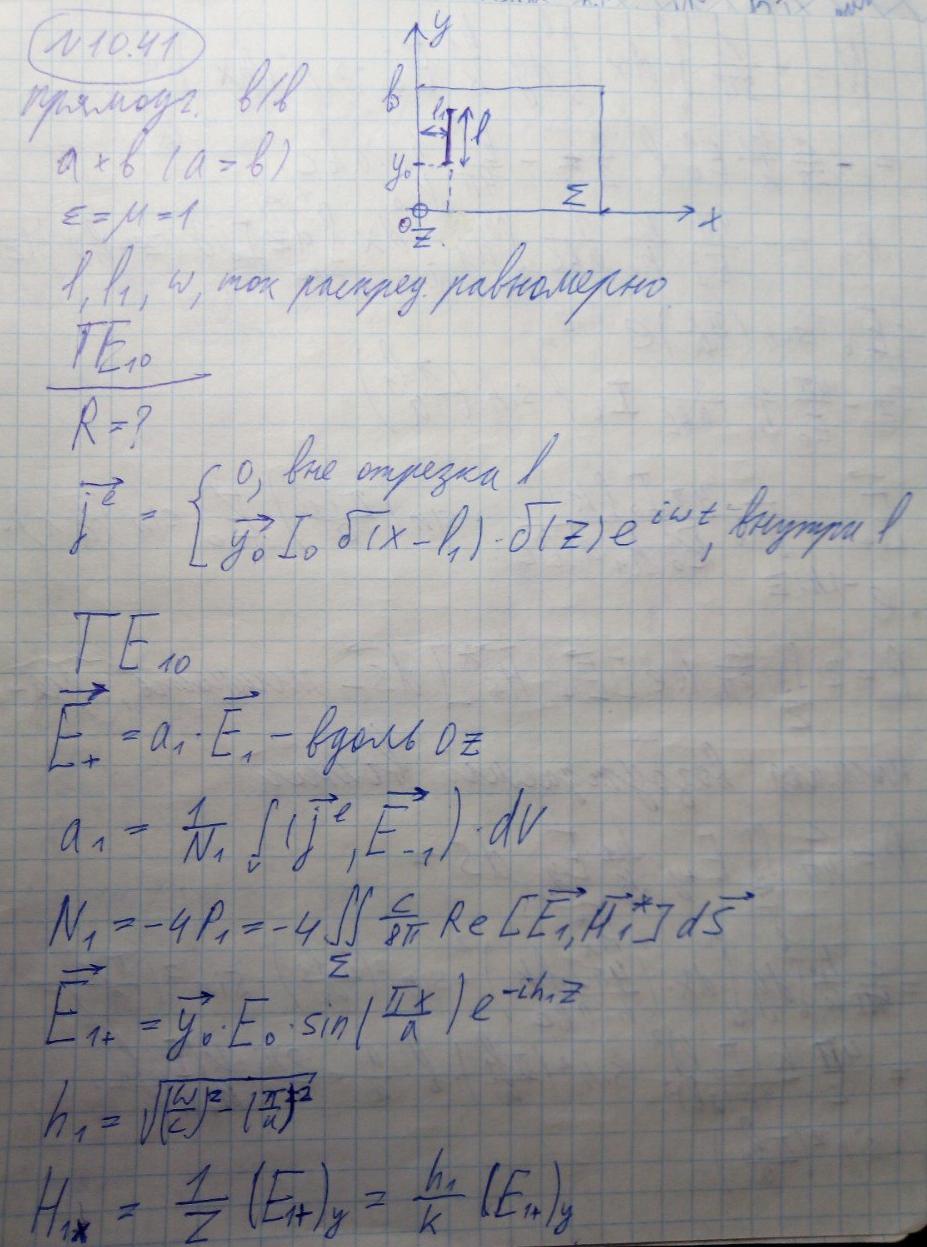 N 10.41
прямоуг. в/в
a × b (a > b)
ε = μ = 1
l, l₁, w, ток распред. равномерно
TE₁₀
R = ?
y
b
l₁
l
y₀
Σ
0
z
x
j⃗ᵉ = { 0, вне отрезка l
y⃗₀ I₀ δ(x - l₁) · δ(z) e^{iωt}, внутри l
TE₁₀
E⃗₊ = a₁ · E⃗₁ - вдоль Oz
a₁ = 1/N₁ ∫_v (j⃗ᵉ, E⃗₋₁) · dV
N₁ = -4P₁ = -4 ∬_Σ c/8π Re [E⃗₁, H⃗₁*] dS⃗
E⃗₁₊ = y⃗₀ · E₀ · sin(πx/a) e^{-ih₁z}
h₁ = √((ω/c)² - (π/a)²)
H₁ₓ = 1/Z (E₁₊)_y = h₁/k (E₁₊)_y